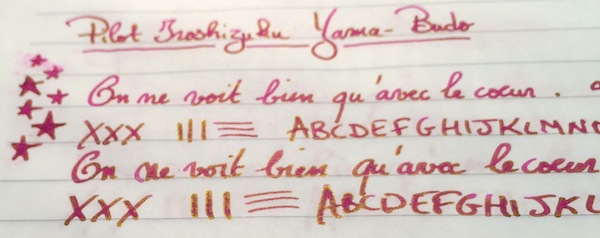 Pilot Iroshizuku Yama-Budo
On ne voit bien qu'avec le coeur.
XXX III ABCDEFGHIJKLMN
On ne voit bien qu'avec le coeur
XXX III ABCDEFGHIJKL